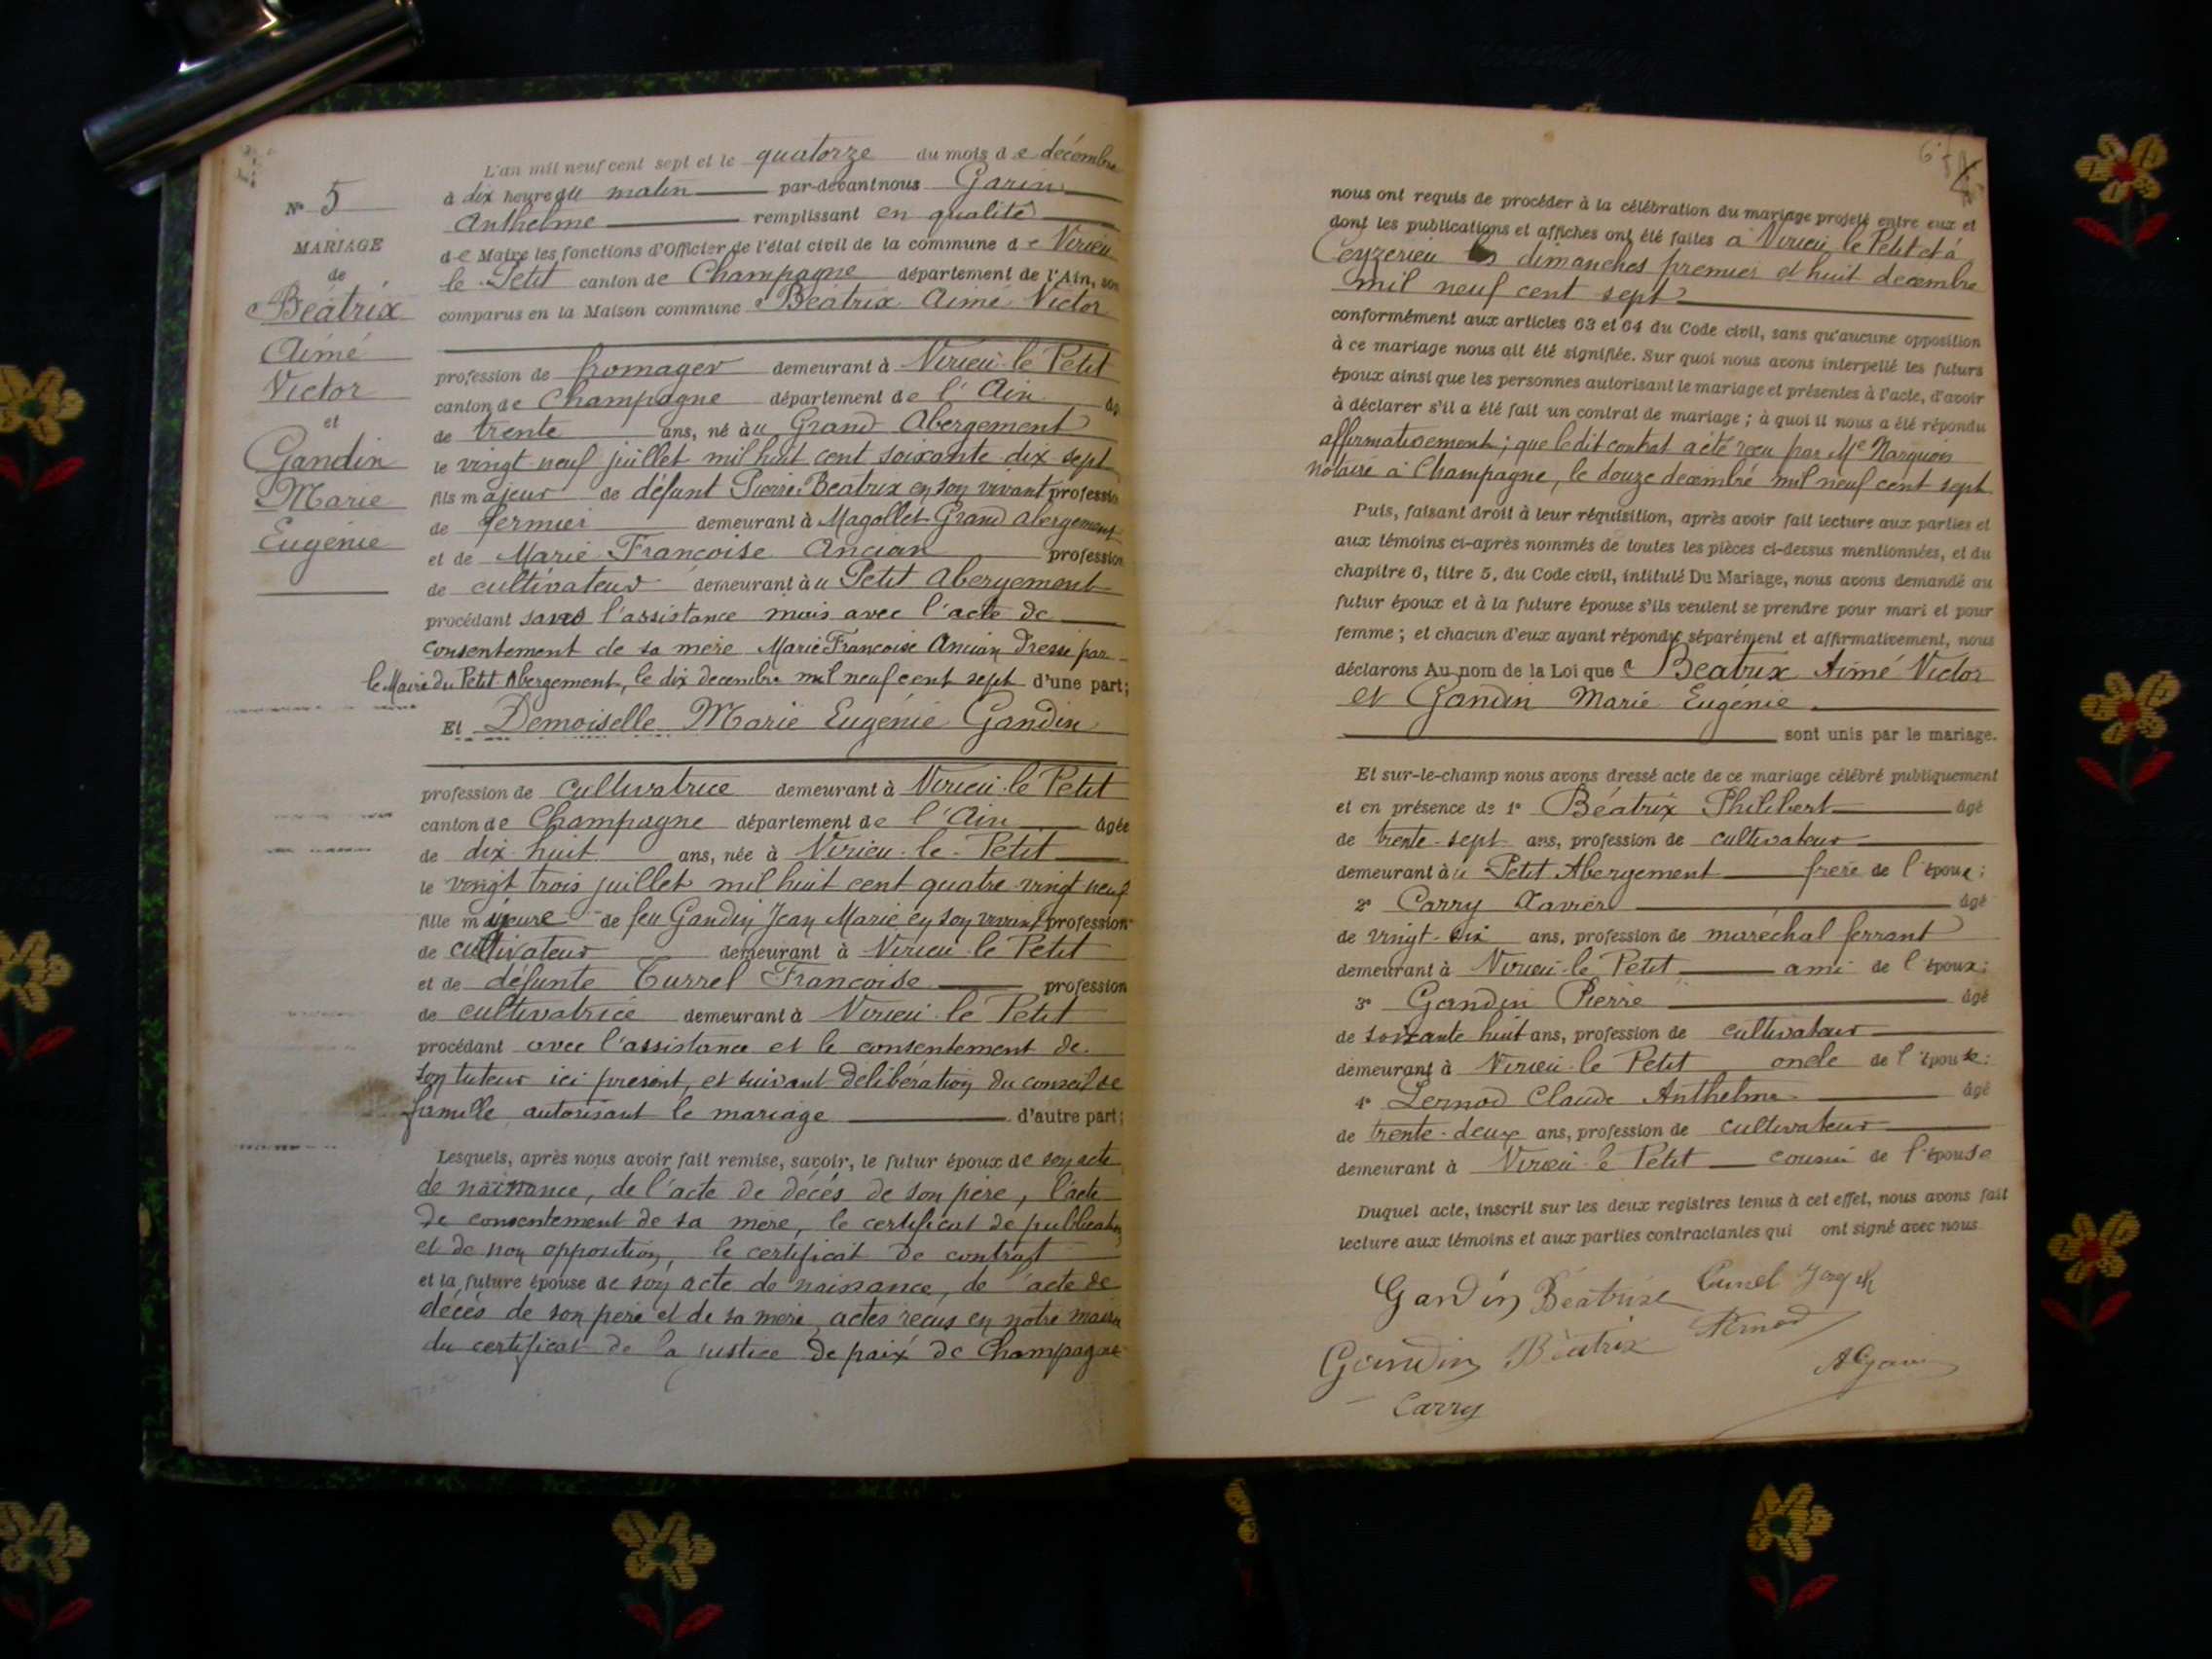 Nº 5
MARIAGE
de
Béatrix
Aimé
Victor
et
Gandin
Marie
Eugénie
L'an mil neuf cent sept et le quatorze du mois de décembre
à dix heure du matin par-devant nous Garin
Anthelme remplissant en qualité
de Maire les fonctions d'Officier de l'état civil de la commune de Virieu
le Petit canton de Champagne département de l'Ain, son
comparus en la Maison commune Béatrix Aimé Victor
profession de fromager demeurant à Virieu le Petit
canton de Champagne département de l'Ain âgé
de trente ans, né au Grand Abergement
le vingt neuf juillet mil huit cent soixante dix sept
fils majeur de défunt Pierre Béatrix en son vivant profession
de fermier demeurant à Magollet Grand Abergement
et de Marie Françoise Ancian profession
de cultivateur demeurant au Petit Abergement
procédant sans l'assistance mais avec l'acte de
consentement de sa mère Marie Françoise Ancian dressé par
le Maire du Petit Abergement, le dix decembre mil neuf cent sept d'une part;
Et Demoiselle Marie Eugénie Gandin
profession de cultivatrice demeurant à Virieu le Petit
canton de Champagne département de l'Ain âgée
de dix huit ans, née à Virieu-le-Petit
le vingt trois juillet mil huit cent quatre vingt neuf
fille mineure de feu Gandin Jean Marie en son vivant profession
de cultivateur demeurant à Virieu le Petit
et de défunte Turrel Françoise profession
de cultivatrice demeurant à Virieu le Petit
procédant avec l'assistance et le consentement de
son tuteur ici présent, et suivant délibération du conseil de
famille autorisant le mariage d'autre part;
Lesquels, après nous avoir fait remise, savoir, le futur époux de son acte
de naissance, de l'acte de décès de son père, l'acte
de consentement de sa mère, le certificat de publication
et de non opposition, le certificat de contrat
et la future épouse de son acte de naissance, de l'acte de
décès de son père et de sa mère, actes reçus en notre mairie
du certificat de la justice de paix de Champagne
nous ont requis de procéder à la célébration du mariage projeté entre eux et
dont les publications et affiches ont été faites à Virieu le Petit et à
Ceyzerieu les dimanches premier et huit decembre
mil neuf cent sept
conformément aux articles 63 et 64 du Code civil, sans qu'aucune opposition
à ce mariage nous ait été signifiée. Sur quoi nous avons interpellé les futurs
époux ainsi que les personnes autorisant le mariage et présentes à l'acte, d'avoir
à déclarer s'il a été fait un contrat de mariage; à quoi il nous a été répondu
affirmativement; que ledit contrat a été reçu par Me Marquois
notaire à Champagne, le douze decembre mil neuf cent sept
Puis, faisant droit à leur réquisition, après avoir fait lecture aux parties et
aux témoins ci-après nommés de toutes les pièces ci-dessus mentionnées, et du
chapitre 6, titre 5, du Code civil, intitulé Du Mariage, nous avons demandé au
futur époux et à la future épouse s'ils veulent se prendre pour mari et pour
femme; et chacun d'eux ayant répondu séparément et affirmativement, nous
déclarons Au nom de la Loi que Béatrix Aimé Victor
et Gandin Marie Eugénie
sont unis par le mariage.
Et sur-le-champ nous avons dressé acte de ce mariage célébré publiquement
et en présence de 1º Béatrix Philibert âgé
de trente-sept ans, profession de cultivateur
demeurant au Petit Abergement frère de l'époux;
2º Carry Xavier âgé
de vingt-six ans, profession de maréchal ferrant
demeurant à Virieu le Petit ami de l'époux;
3º Gandin Pierre âgé
de soixante huit ans, profession de cultivateur
demeurant à Virieu le Petit oncle de l'épouse;
4º Pernod Claude Anthelme âgé
de trente-deux ans, profession de cultivateur
demeurant à Virieu le Petit cousin de l'épouse
Duquel acte, inscrit sur les deux registres tenus à cet effet, nous avons fait
lecture aux témoins et aux parties contractantes qui ont signé avec nous
Gandin Béatrix
Gandin Béatrix Pernod
Carry